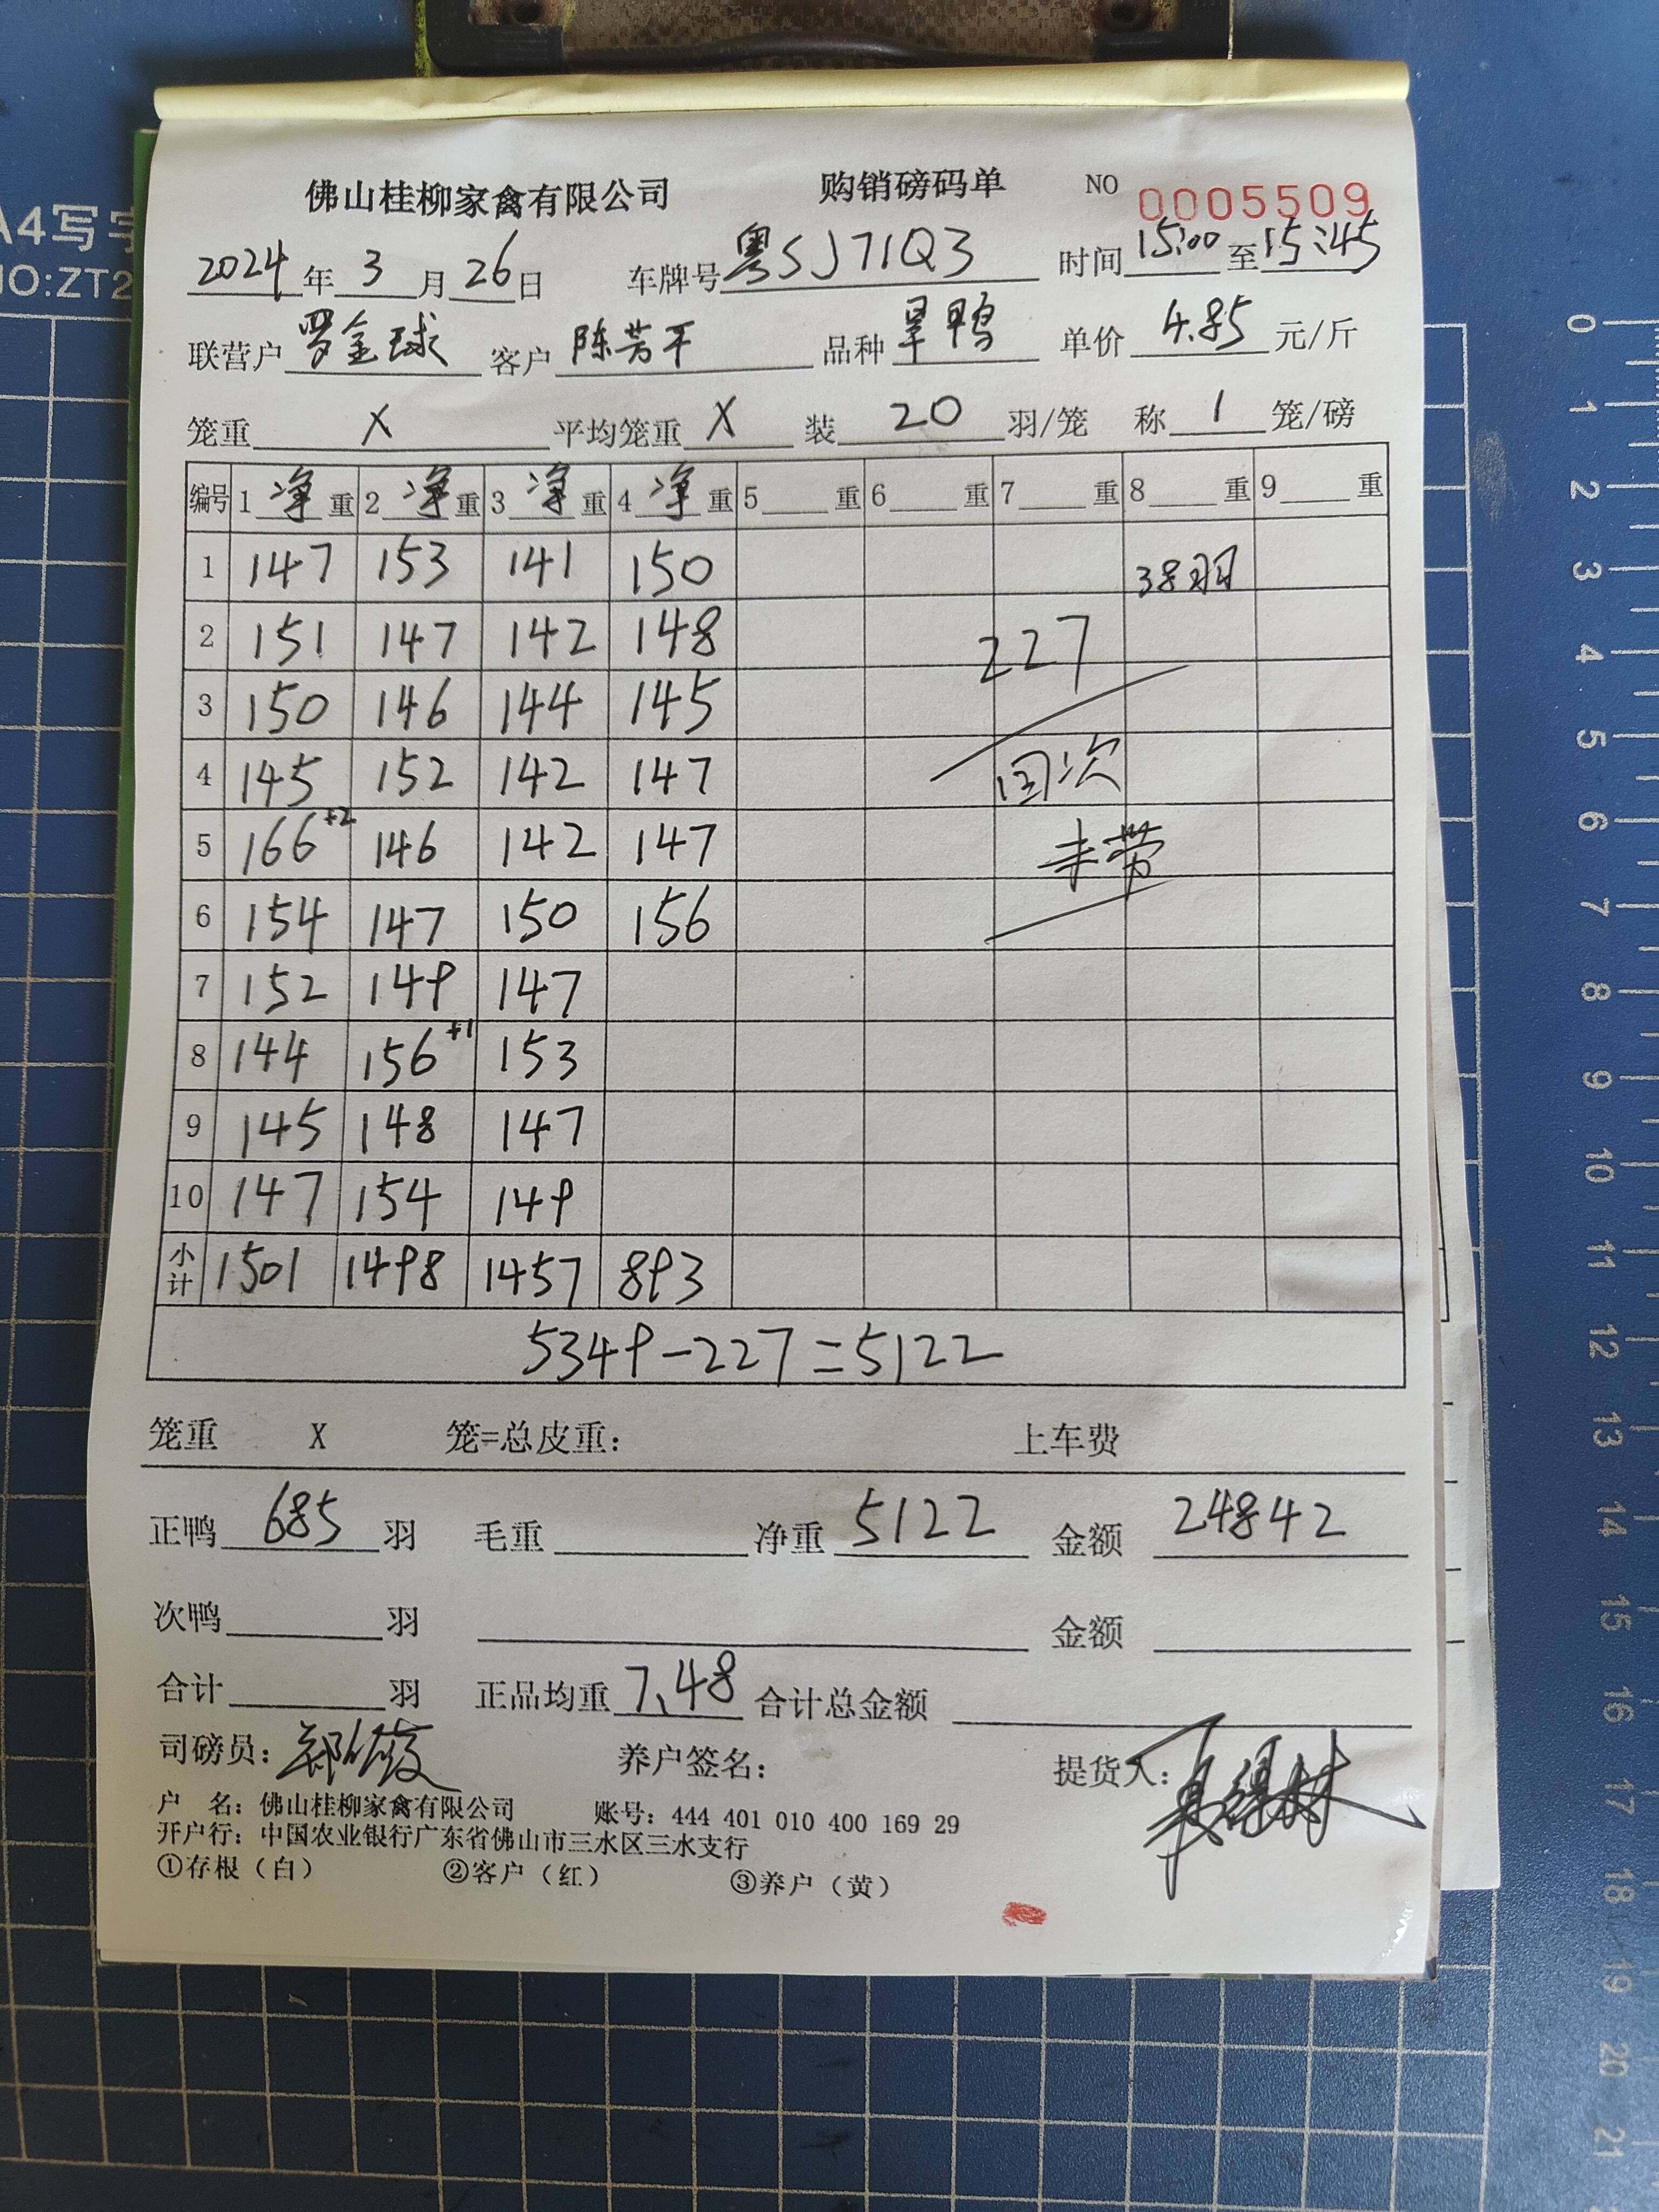 A4写字
NO:ZT2
佛山桂柳家禽有限公司 购销磅码单 NO 0005509
2024年3月26日 车牌号粤SJ71Q3 时间15:00至15:45
联营户罗金球 客户陈芳平 品种旱鸭 单价4.85元/斤
笼重X 平均笼重X 装20羽/笼 称1笼/磅
编号 1净重 2净重 3净重 4净重 5重 6重 7重 8重 9重
1 147 153 141 150 38羽
2 151 147 142 148 227
3 150 146 144 145
4 145 152 142 147 回次
5 166+2 146 142 147 未带
6 154 147 150 156
7 152 149 147
8 144 156+1 153
9 145 148 147
10 147 154 149
小计 1501 1498 1457 893
5349-227=5122
笼重 X 笼=总皮重: 上车费
正鸭685羽 毛重 净重5122 金额24842
次鸭 羽 金额
合计 羽 正品均重7.48 合计总金额
司磅员: 养户签名: 提货人:
户 名:佛山桂柳家禽有限公司 账号:444 401 010 400 169 29
开户行:中国农业银行广东省佛山市三水区三水支行
①存根(白) ②客户(红) ③养户(黄)
0
1
2
3
4
5
6
7
8
9
10
11
12
13
14
15
16
17
18
19
20
21